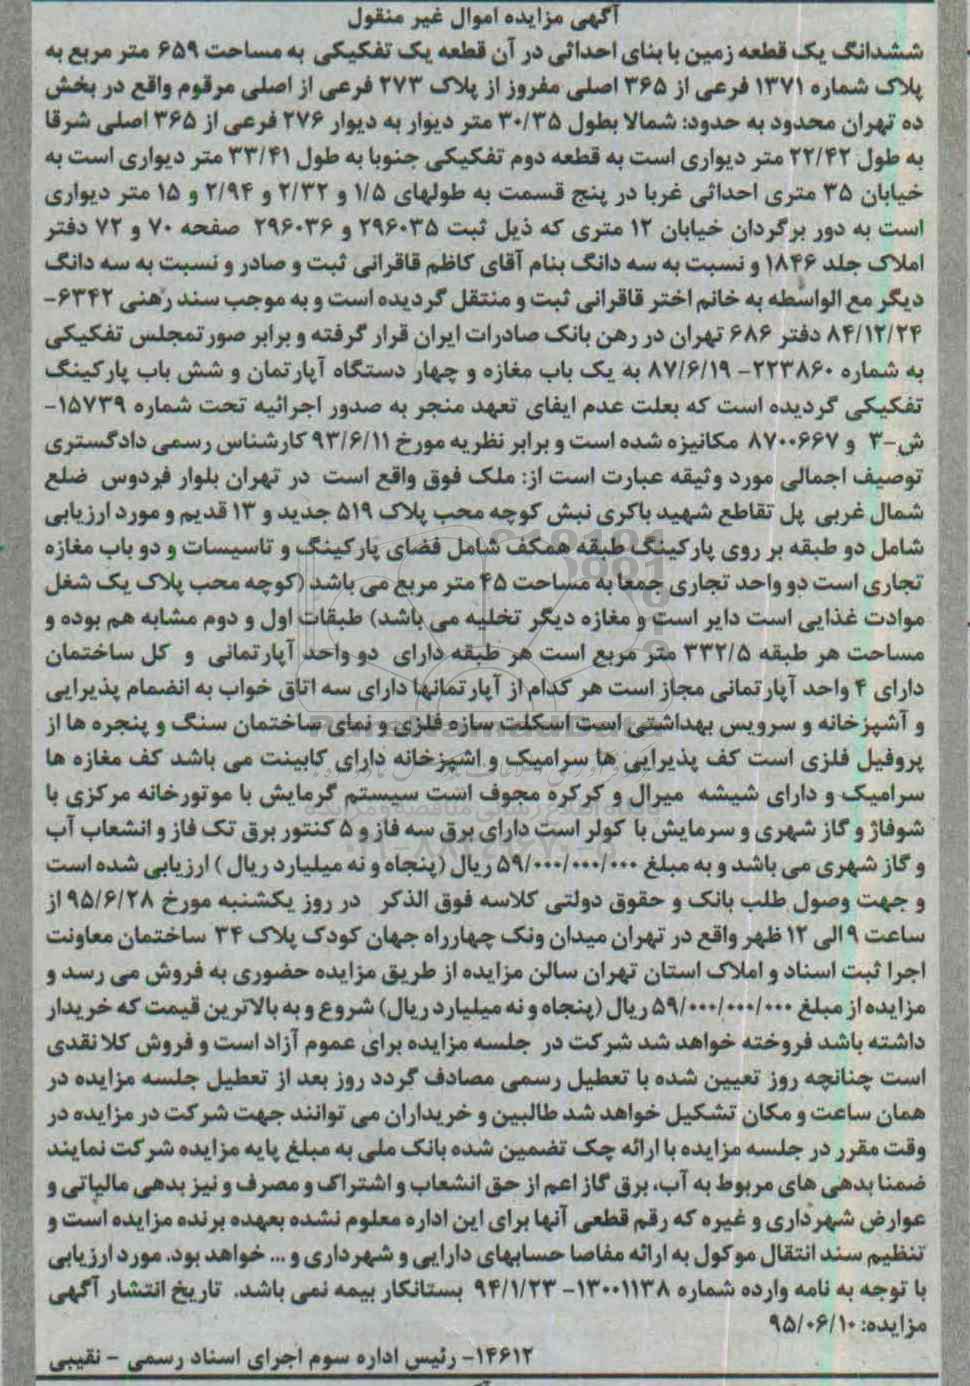 آگهی مزایده اموال غیر منقول
ششدانگ یک قطعه زمین با بنای احداثی در آن قطعه یک تفکیکی به مساحت ۶۵۹ متر مربع به
پلاک شماره ۱۳۷۱ فرعی از ۳۶۵ اصلی مفروز از پلاک ۲۷۳ فرعی از اصلی مرقوم واقع در بخش
ده تهران محدود به حدود: شمالا بطول ۳۰/۳۵ متر دیوار به دیوار ۲۷۶ فرعی از ۳۶۵ اصلی شرقا
به طول ۲۲/۴۲ متر دیواری است به قطعه دوم تفکیکی جنوبا به طول ۳۳/۴۱ متر دیواری است به
خیابان ۳۵ متری احداثی غربا در پنج قسمت به طولهای ۱/۵ و ۲/۳۲ و ۲/۹۴ و ۱۵ متر دیواری
است به دور برگردان خیابان ۱۲ متری که ذیل ثبت ۲۹۶۰۳۵ و ۲۹۶۰۳۶ صفحه ۷۰ و ۷۲ دفتر
املاک جلد ۱۸۴۶ و نسبت به سه دانگ بنام آقای کاظم قاقرانی ثبت و صادر و نسبت به سه دانگ
دیگر مع الواسطه به خانم اختر قاقرانی ثبت و منتقل گردیده است و به موجب سند رهنی ۶۳۴۲-
۸۴/۱۲/۲۴ دفتر ۶۸۶ تهران در رهن بانک صادرات ایران قرار گرفته و برابر صورتمجلس تفکیکی
به شماره ۲۲۳۸۶۰- ۸۷/۶/۱۹ به یک باب مغازه و چهار دستگاه آپارتمان و شش باب پارکینگ
تفکیکی گردیده است که بعلت عدم ایفای تعهد منجر به صدور اجرائیه تحت شماره ۱۵۷۳۹-
ش-۳ و ۸۷۰۰۶۶۷ مکانیزه شده است و برابر نظریه مورخ ۹۳/۶/۱۱ کارشناس رسمی دادگستری
توصیف اجمالی مورد وثیقه عبارت است از: ملک فوق واقع است در تهران بلوار فردوس ضلع
شمال غربی پل تقاطع شهید باکری نبش کوچه محب پلاک ۵۱۹ جدید و ۱۳ قدیم و مورد ارزیابی
شامل دو طبقه بر روی پارکینگ طبقه همکف شامل فضای پارکینگ و تاسیسات و دو باب مغازه
تجاری است دو واحد تجاری جمعا به مساحت ۴۵ متر مربع می باشد (کوچه محب پلاک یک شغل
موادت غذایی است دایر است و مغازه دیگر تخلیه می باشد) طبقات اول و دوم مشابه هم بوده و
مساحت هر طبقه ۳۳۲/۵ متر مربع است هر طبقه دارای دو واحد آپارتمانی و کل ساختمان
دارای ۴ واحد آپارتمانی مجاز است هر کدام از آپارتمانها دارای سه اتاق خواب به انضمام پذیرایی
و آشپزخانه و سرویس بهداشتی است اسکلت سازه فلزی و نمای ساختمان سنگ و پنجره ها از
پروفیل فلزی است کف پذیرایی ها سرامیک و اشپزخانه دارای کابینت می باشد کف مغازه ها
سرامیک و دارای شیشه میرال و کرکره مجوف است سیستم گرمایش با موتورخانه مرکزی با
شوفاژ و گاز شهری و سرمایش با کولر است دارای برق سه فاز و ۵ کنتور برق تک فاز و انشعاب آب
و گاز شهری می باشد و به مبلغ ۵۹/۰۰۰/۰۰۰/۰۰۰ ریال (پنجاه و نه میلیارد ریال) ارزیابی شده است
و جهت وصول طلب بانک و حقوق دولتی کلاسه فوق الذکر در روز یکشنبه مورخ ۹۵/۶/۲۸ از
ساعت ۹ الی ۱۲ ظهر واقع در تهران میدان ونک چهارراه جهان کودک پلاک ۳۴ ساختمان معاونت
اجرا ثبت اسناد و املاک استان تهران سالن مزایده از طریق مزایده حضوری به فروش می رسد و
مزایده از مبلغ ۵۹/۰۰۰/۰۰۰/۰۰۰ ریال (پنجاه و نه میلیارد ریال) شروع و به بالاترین قیمت که خریدار
داشته باشد فروخته خواهد شد شرکت در جلسه مزایده برای عموم آزاد است و فروش کلا نقدی
است چنانچه روز تعیین شده با تعطیل رسمی مصادف گردد روز بعد از تعطیل جلسه مزایده در
همان ساعت و مکان تشکیل خواهد شد طالبین و خریداران می توانند جهت شرکت در مزایده در
وقت مقرر در جلسه مزایده با ارائه چک تضمین شده بانک ملی به مبلغ پایه مزایده شرکت نمایند
ضمنا بدهی های مربوط به آب، برق گاز اعم از حق انشعاب و اشتراک و مصرف و نیز بدهی مالیاتی و
عوارض شهرداری و غیره که رقم قطعی آنها برای این اداره معلوم نشده بعهده برنده مزایده است و
تنظیم سند انتقال موکول به ارائه مفاصا حسابهای دارایی و شهرداری و ... خواهد بود. مورد ارزیابی
با توجه به نامه وارده شماره ۱۳۰۰۱۱۳۸- ۹۴/۱/۲۳ بستانکار بیمه نمی باشد. تاریخ انتشار آگهی
مزایده: ۹۵/۰۶/۱۰
۱۴۶۱۲- رئیس اداره سوم اجرای اسناد رسمی - نقیبی